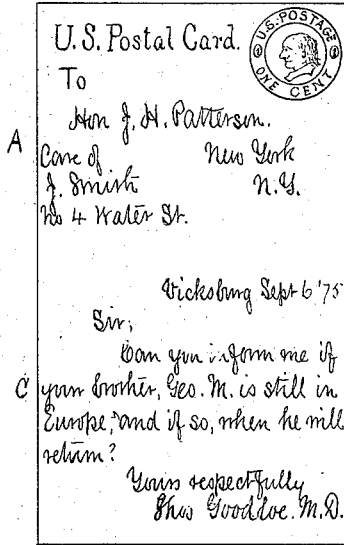 U.S. Postal Card.
U.S. POSTAGE
ONE CENT
To
Hon J. H. Patterson.
A
Care of New York
J. Smith N.Y.
No 4 Water St.
Vicksburg Sept 6 '75
Sir,
Can you inform me if
C
your brother, Geo. M. is still in
Europe, and if so, when he will
return?
Yours respectfully
Thos Goodloe. M.D.